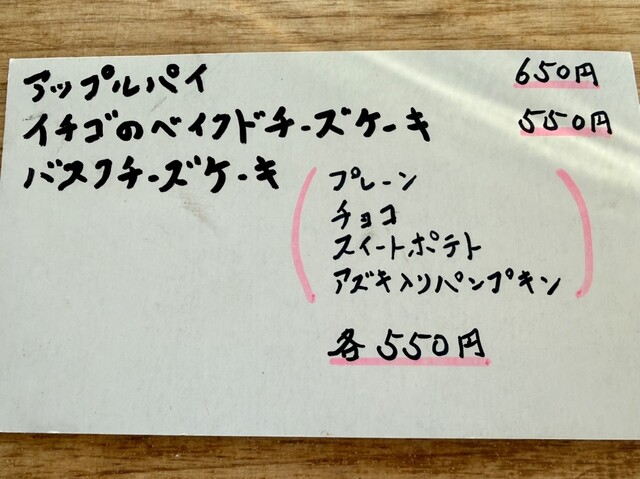 アップルパイ 650円
イチゴのベイクドチーズケーキ 550円
バスクチーズケーキ
プレーン
チョコ
スイートポテト
アズキ入りパンプキン
各550円